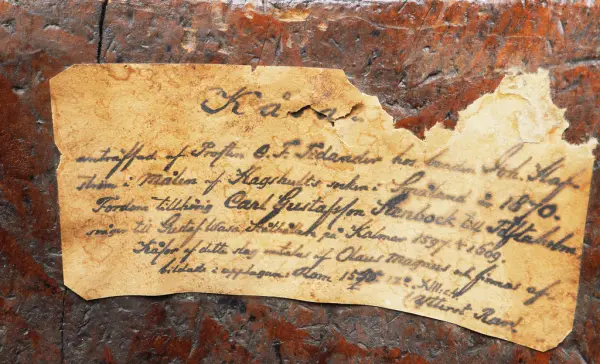 Kåsa.
anträffad af Prosten C. F. Tidander hos bonden Joh. Haf-
ström i Målen af Hagshults socken i Småland år 1870.
Fordom tillhörig Carl Gustafsson Stenbock till
måg till Gustaf Wasa, Ståthållare på Kalmar 1597 & 1609.
Kåsor af detta slag omtalas af Olaus Magnus och finnas af-
bildade i upplagan Rom 15